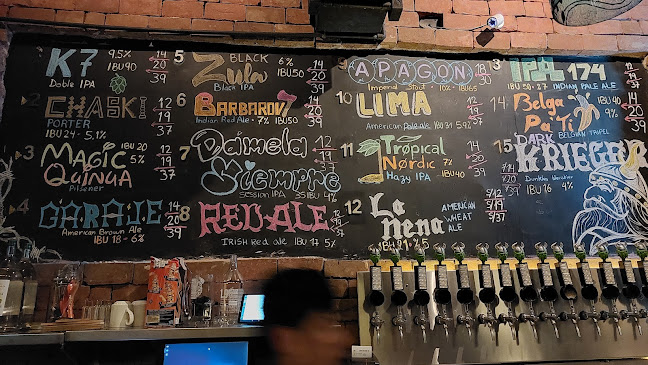 K7 9.5%
IBU 90
Doble IPA
14
20
39
2 CHASKI
PORTER
IBU 24 · 5,1%
12
19
37
3 MAGIC QUINUA
IBU 20
5%
Pilsener
12
19
37
4 GARAJE
American Brown Ale
IBU 18 - 6%
14
20
39
5 Zula
BLACK
6%
IBU 50
Black IPA
14
20
39
6 BARBAROV
Indian Red Ale · 7% IBU 50
14
20
39
Dámela Siempre
SESSION IPA 35 IBU 4%
12
19
37
8 RED ALE
IRISH Red ale IBU 17 5%
12
19
37
9 APAGON
Imperial Stout · 10% · IBU 65
18
30
10 LIMA
American Pale ale IBU 31 5.9%
14
20
39
11 Tropical Nørdic
7%
IBU 40
Hazy IPA
14
20
39
12 La Nena
AMERICAN
WHEAT
ALE
IBU 21 · 5
$/12
$/19
$/37
IPA 174
IBU 50 - 27
INDIAN PALE ALE
14
Belga Pa' Ti
IBU 20
9%
BELGIAN TRIPEL
14
20
39
15 DARK KRIEGER
Dunkles Weissbier
IBU 16 4%
14
20
39